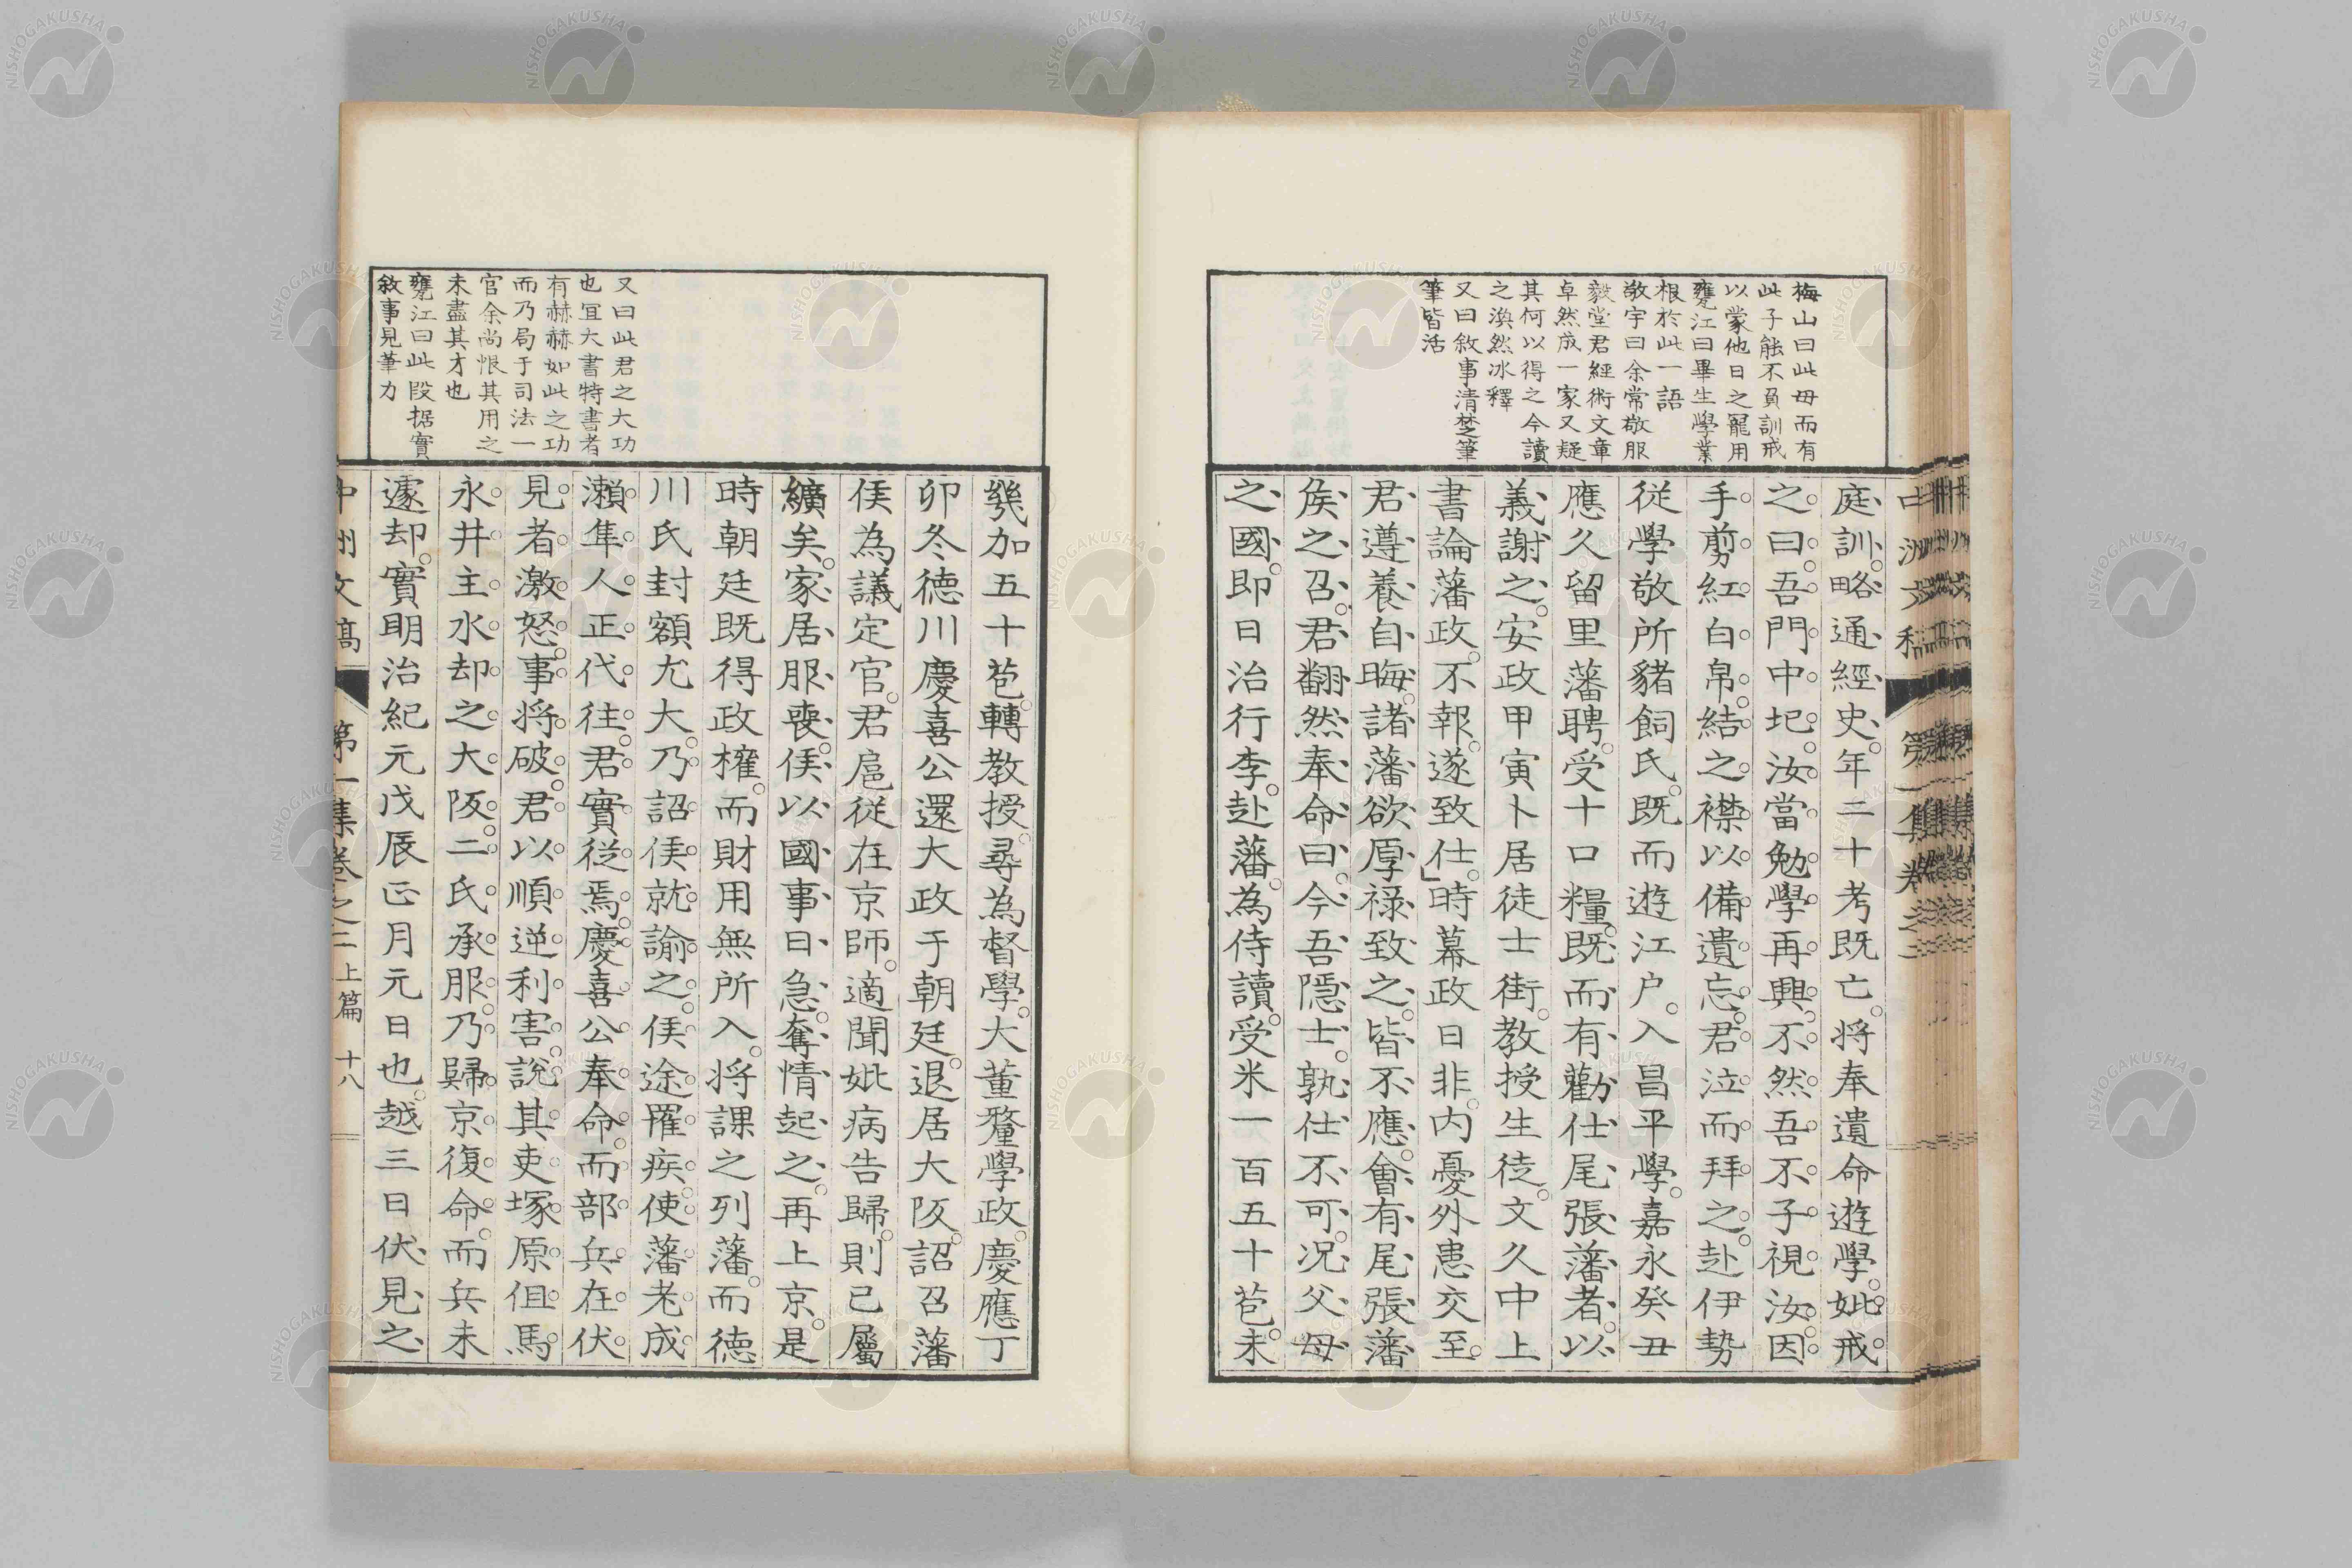 梅山曰此母而有
此子能不負訓戒
以蒙他日之寵用
甕江曰畢生學業
根於此一語
敬宇曰余常敬服
毅堂君經術文章
卓然成一家又疑
其何以得之今讀
之渙然冰釋
又曰敘事清楚筆
筆皆活
庭訓。略通經史。年二十考既亡。將奉遺命遊學。妣戒
之曰。吾門中圮。汝當勉學再興。不然吾不子視汝。因
手剪紅白帛。結之襟以備遺忘。君泣而拜之。赴伊勢
從學敬所豬飼氏。既而遊江戶。入昌平學。嘉永癸丑
應久留里藩聘。受十口糧。既而有勸仕尾張藩者。以
義謝之。安政甲寅卜居徒士街。教授生徒。文久中上
書論藩政。不報。遂致仕。」時幕政日非。內憂外患交至。
君遵養自晦。諸藩欲厚祿致之。皆不應。會有尾張藩
矦之召。君翻然奉命曰。今吾隱士。孰仕不可。况父母
之國。即日治行李。赴藩。為侍讀。受米一百五十苞。未
中洲文稿 第一集卷之二
又曰此君之大功
也宜大書特書者
有赫赫如此之功
而乃局于司法一
官余尚恨其用之
未盡其才也
甕江曰此段据實
敘事見筆力
幾加五十苞。轉教授。尋為督學。大董釐學政。慶應丁
卯冬德川慶喜公還大政于朝廷。退居大阪。詔召藩
侯為議定官。君扈從在京師。適聞妣病告歸。則已屬
纊矣。家居服喪。侯以國事日急。奪情起之。再上京。是
時朝廷既得政權。而財用無所入。將課之列藩。而德
川氏封額尤大。乃詔侯就諭之。侯途罹疾。使藩老成
瀨隼人正代往。君實從焉。慶喜公奉命。而部兵在伏
見者激怒。事將破。君以順逆利害。說其吏塚原但馬
永井主水。却之大阪。二氏承服。乃歸京復命。而兵未
遽却。實明治紀元戊辰正月元日也。越三日伏見之
中洲文稿 第一集卷之二 上篇 十八
NISHOGAKUSHA